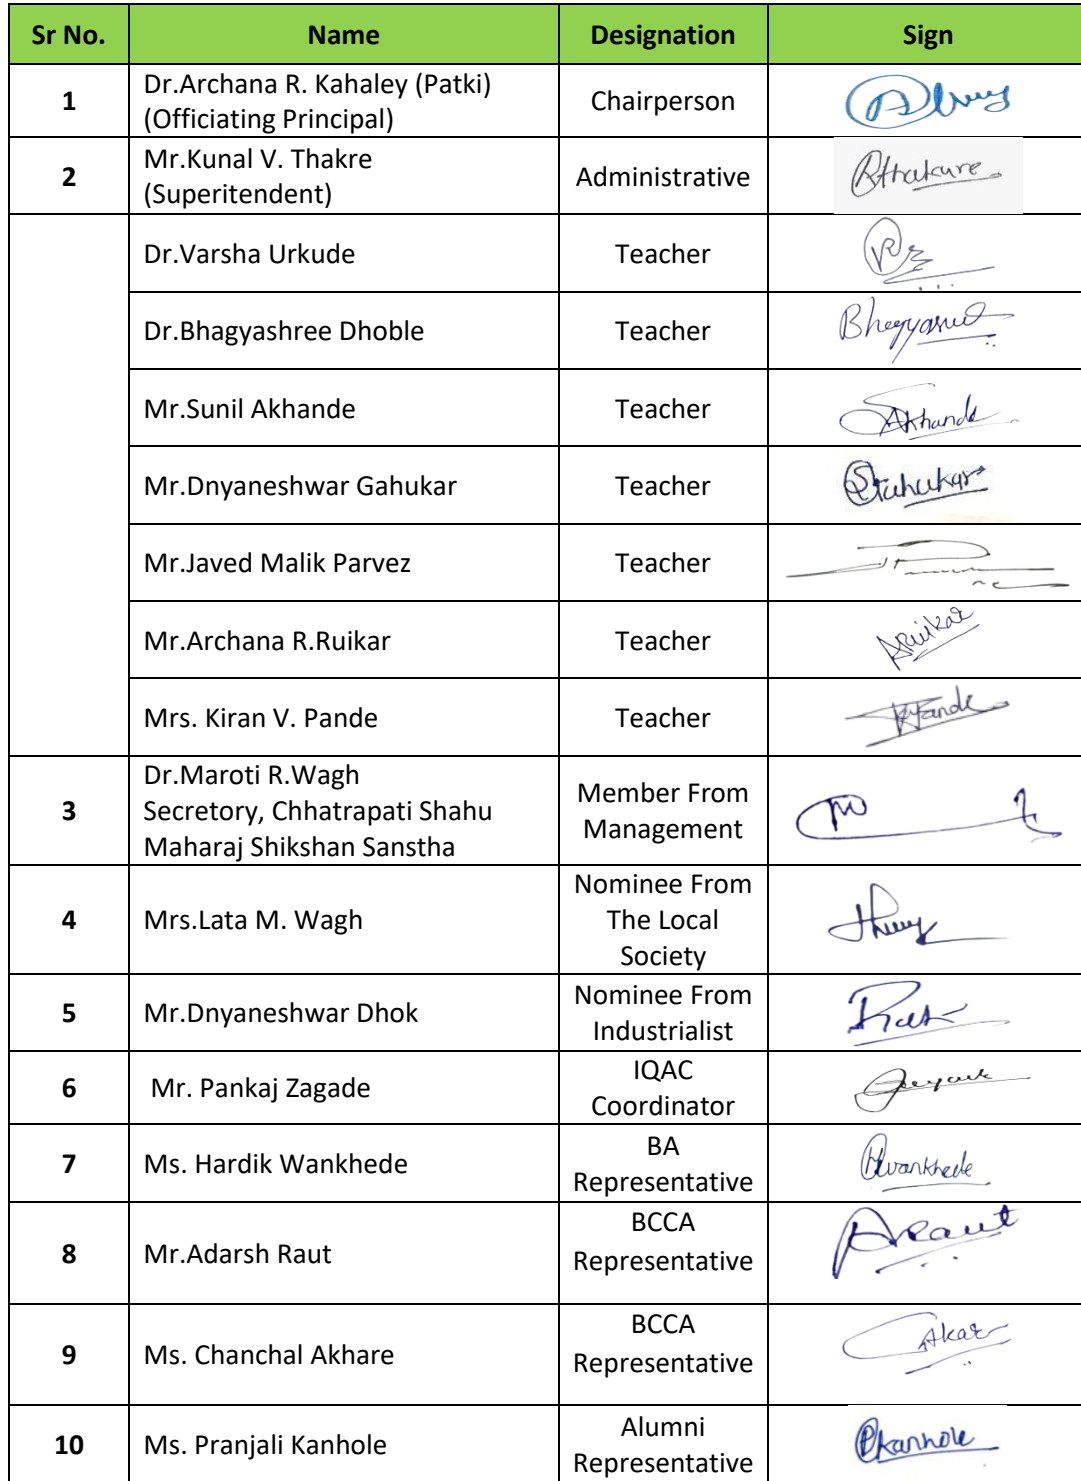 Sr No. Name Designation Sign
1 Dr.Archana R. Kahaley (Patki)
(Officiating Principal) Chairperson
2 Mr.Kunal V. Thakre
(Superitendent) Administrative Rthakure
Dr.Varsha Urkude Teacher
Dr.Bhagyashree Dhoble Teacher
Mr.Sunil Akhande Teacher SAkhande
Mr.Dnyaneshwar Gahukar Teacher
Mr.Javed Malik Parvez Teacher
Mr.Archana R.Ruikar Teacher ARuikar
Mrs. Kiran V. Pande Teacher
3 Dr.Maroti R.Wagh
Secretory, Chhatrapati Shahu
Maharaj Shikshan Sanstha Member From
Management
4 Mrs.Lata M. Wagh Nominee From
The Local
Society
5 Mr.Dnyaneshwar Dhok Nominee From
Industrialist
6 Mr. Pankaj Zagade IQAC
Coordinator
7 Ms. Hardik Wankhede BA
Representative HWankhede
8 Mr.Adarsh Raut BCCA
Representative ARaut
9 Ms. Chanchal Akhare BCCA
Representative
10 Ms. Pranjali Kanhole Alumni
Representative PKanhole